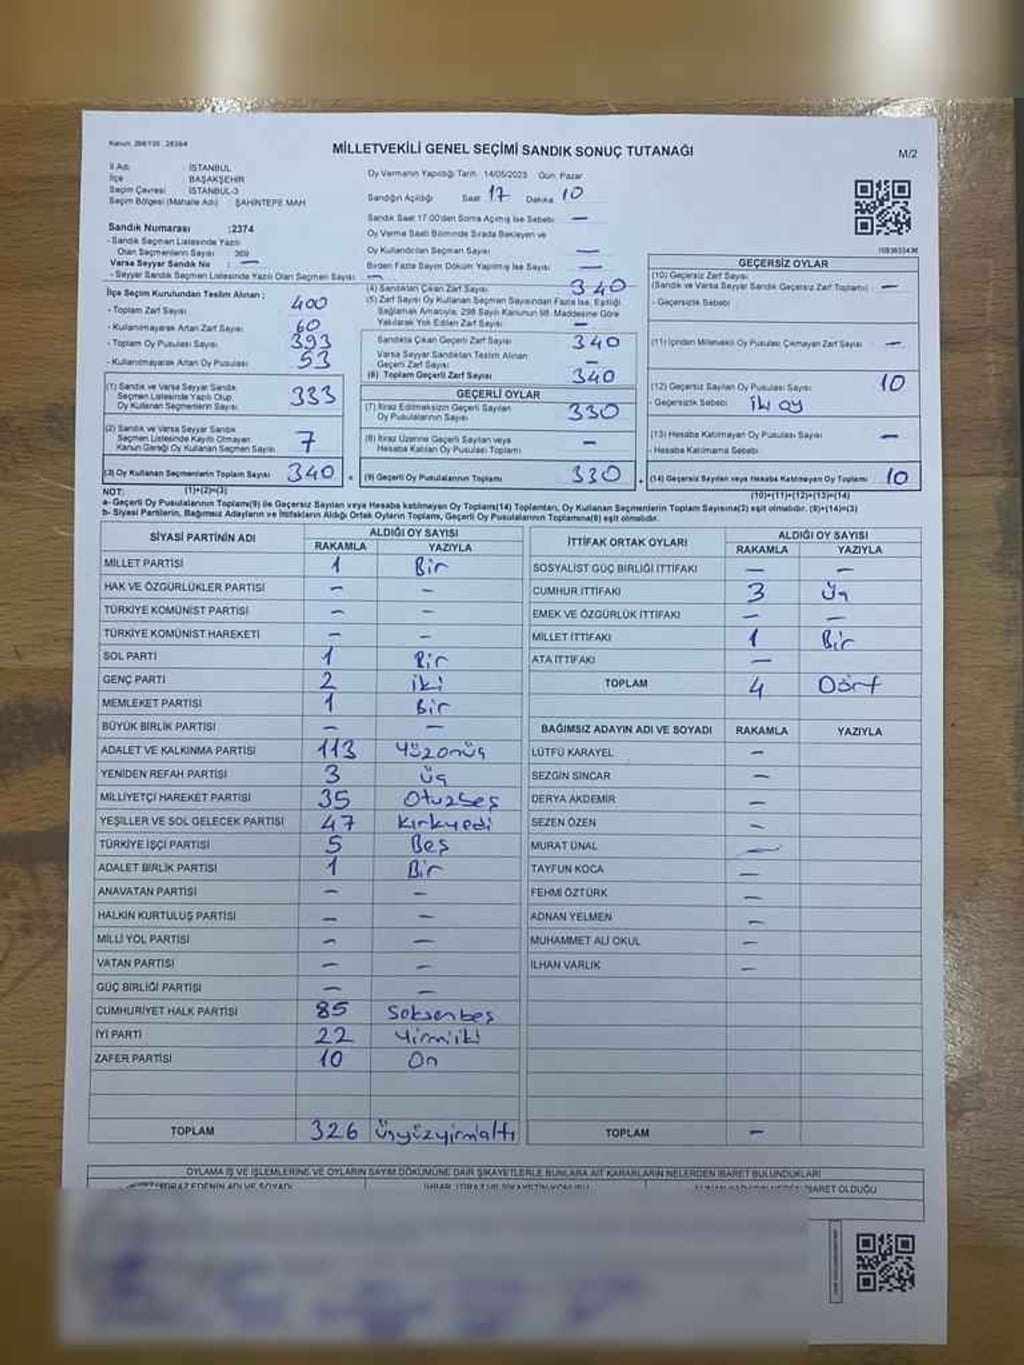 MİLLETVEKİLİ GENEL SEÇİMİ SANDIK SONUÇ TUTANAĞI
M/2
İl Adı : İSTANBUL
İlçe : BAŞAKŞEHİR
Seçim Çevresi : İSTANBUL-3
Seçim Bölgesi (Mahalle Adı) : ŞAHİNTEPE MAH
Oy Vermenin Yapıldığı Tarih : 14/05/2023 Gün: Pazar
Sandığın Açıldığı Saat 17 Dakika 10
Sandık Saat 17:00'den Sonra Açılmış İse Sebebi: —
Oy Verme Saati Bitiminde Sırada Bekleyen ve
Oy Kullandırılan Seçmen Sayısı —
Birden Fazla Sayım Döküm Yapılmış İse Sayısı —
Sandık Numarası :2374
- Sandık Seçmen Listesinde Yazılı
Olan Seçmenlerin Sayısı : 369
Varsa Seyyar Sandık No : —
- Seyyar Sandık Seçmen Listesinde Yazılı Olan Seçmen Sayısı : —
İlçe Seçim Kurulundan Teslim Alınan ;
- Toplam Zarf Sayısı 400
- Kullanılmayarak Artan Zarf Sayısı 60
- Toplam Oy Pusulası Sayısı 393
- Kullanılmayarak Artan Oy Pusulası 53
(1) Sandık ve Varsa Seyyar Sandık
Seçmen Listesinde Yazılı Olup
Oy Kullanan Seçmenlerin Sayısı 333
(2) Sandık ve Varsa Seyyar Sandık
Seçmen Listesinde Kayıtlı Olmayan
Kanun Gereği Oy Kullanan Seçmen Sayısı 7
(3) Oy Kullanan Seçmenlerin Toplam Sayısı 340
(1)+(2)=(3)
(4) Sandıktan Çıkan Zarf Sayısı 340
(5) Zarf Sayısı Oy Kullanan Seçmen Sayısından Fazla İse, Eşitliği
Sağlamak Amacıyla, 298 Sayılı Kanunun 98. Maddesine Göre
Yakılarak Yok Edilen Zarf Sayısı —
Sandıkta Çıkan Geçerli Zarf Sayısı 340
Varsa Seyyar Sandıktan Teslim Alınan
Geçerli Zarf Sayısı —
(6) Toplam Geçerli Zarf Sayısı 340
GEÇERLİ OYLAR
(7) İtiraz Edilmeksizin Geçerli Sayılan
Oy Pusulalarının Sayısı 330
(8) İtiraz Üzerine Geçerli Sayılan veya
Hesaba Katılan Oy Pusulası Toplamı —
(9) Geçerli Oy Pusulalarının Toplamı 330
GEÇERSİZ OYLAR
(10) Geçersiz Zarf Sayısı
(Sandık ve Varsa Seyyar Sandık Geçersiz Zarf Toplamı) —
- Geçersizlik Sebebi
(11) İçinden Milletvekili Oy Pusulası Çıkmayan Zarf Sayısı —
(12) Geçersiz Sayılan Oy Pusulası Sayısı 10
- Geçersizlik Sebebi iki oy
(13) Hesaba Katılmayan Oy Pusulası Sayısı —
- Hesaba Katılmama Sebebi
(14) Geçersiz Sayılan veya Hesaba Katılmayan Oy Toplamı 10
(10)+(11)+(12)+(13)=(14)
NOT:
a- Geçerli Oy Pusulalarının Toplamı(9) ile Geçersiz Sayılan veya Hesaba katılmayan Oy Toplamı(14) Toplamları, Oy Kullanan Seçmenlerin Toplam Sayısına(3) eşit olmalıdır. (9)+(14)=(3)
b- Siyasi Partilerin, Bağımsız Adayların ve İttifakların Aldığı Oyların Toplamı, Geçerli Oy Pusulalarının Toplamına(9) eşit olmalıdır.
SİYASİ PARTİNİN ADI ALDIĞI OY SAYISI
RAKAMLA YAZIYLA
MİLLET PARTİSİ 1 Bir
HAK VE ÖZGÜRLÜKLER PARTİSİ — —
TÜRKİYE KOMÜNİST PARTİSİ — —
TÜRKİYE KOMÜNİST HAREKETİ — —
SOL PARTİ 1 Bir
GENÇ PARTİ 2 iki
MEMLEKET PARTİSİ 1 Bir
BÜYÜK BİRLİK PARTİSİ — —
ADALET VE KALKINMA PARTİSİ 113 Yüzonüç
YENİDEN REFAH PARTİSİ 3 üç
MİLLİYETÇİ HAREKET PARTİSİ 35 Otuzbeş
YEŞİLLER VE SOL GELECEK PARTİSİ 47 Kırkyedi
TÜRKİYE İŞÇİ PARTİSİ 5 Beş
ADALET BİRLİK PARTİSİ 1 Bir
ANAVATAN PARTİSİ — —
HALKIN KURTULUŞ PARTİSİ — —
MİLLİ YOL PARTİSİ — —
VATAN PARTİSİ — —
GÜÇ BİRLİĞİ PARTİSİ — —
CUMHURİYET HALK PARTİSİ 85 Seksenbeş
İYİ PARTİ 22 Yirmiiki
ZAFER PARTİSİ 10 On
TOPLAM 326 üçyüzyirmialtı
İTTİFAK ORTAK OYLARI ALDIĞI OY SAYISI
RAKAMLA YAZIYLA
SOSYALİST GÜÇ BİRLİĞİ İTTİFAKI — —
CUMHUR İTTİFAKI 3 üç
EMEK VE ÖZGÜRLÜK İTTİFAKI — —
MİLLET İTTİFAKI 1 Bir
ATA İTTİFAKI —
TOPLAM 4 Dört
BAĞIMSIZ ADAYIN ADI VE SOYADI RAKAMLA YAZIYLA
LÜTFÜ KARAYEL —
SEZGİN SİNCAR —
DERYA AKDEMİR —
SEZEN ÖZEN —
MURAT ÜNAL —
TAYFUN KOCA —
FEHMİ ÖZTÜRK —
ADNAN YELMEN —
MUHAMMET ALİ OKUL —
İLHAN VARLIK —
TOPLAM —
OYLAMA İŞ VE İŞLEMLERİNE VE OYLARIN SAYIM DÖKÜMÜNE DAİR ŞİKAYETLERLE BUNLARA AİT KARARLARIN NELERDEN İBARET BULUNDUKLARI